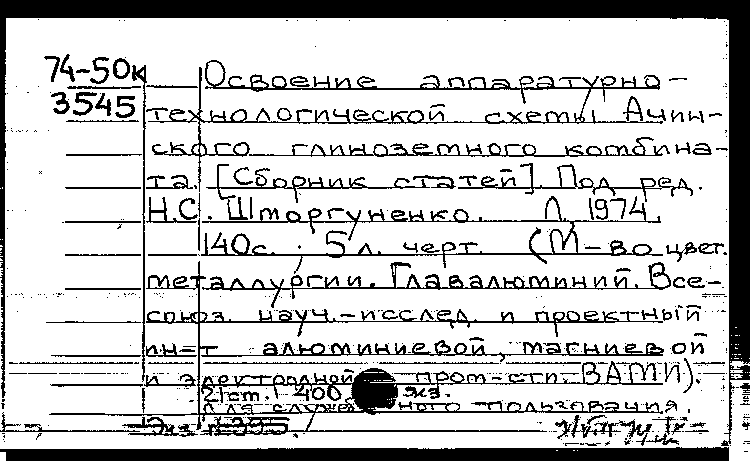 74-50к Освоение аппаратурно-
3545 технологической схемы Ачин-
ского глиноземного комбина-
та. [Сборник статей]. Под ред.
Н.С. Шморгуненко. Л., 1974.
140с. ; 5 л. черт. (М-во цвет.
металлургии. Главалюминий. Все-
союз. науч.-исслед. и проектный
ин-т алюминиевой, магниевой
и электродной пром-сти. ВАМИ).
21 ст. 400 экз.
Для служебного пользования.
Экз. №395.